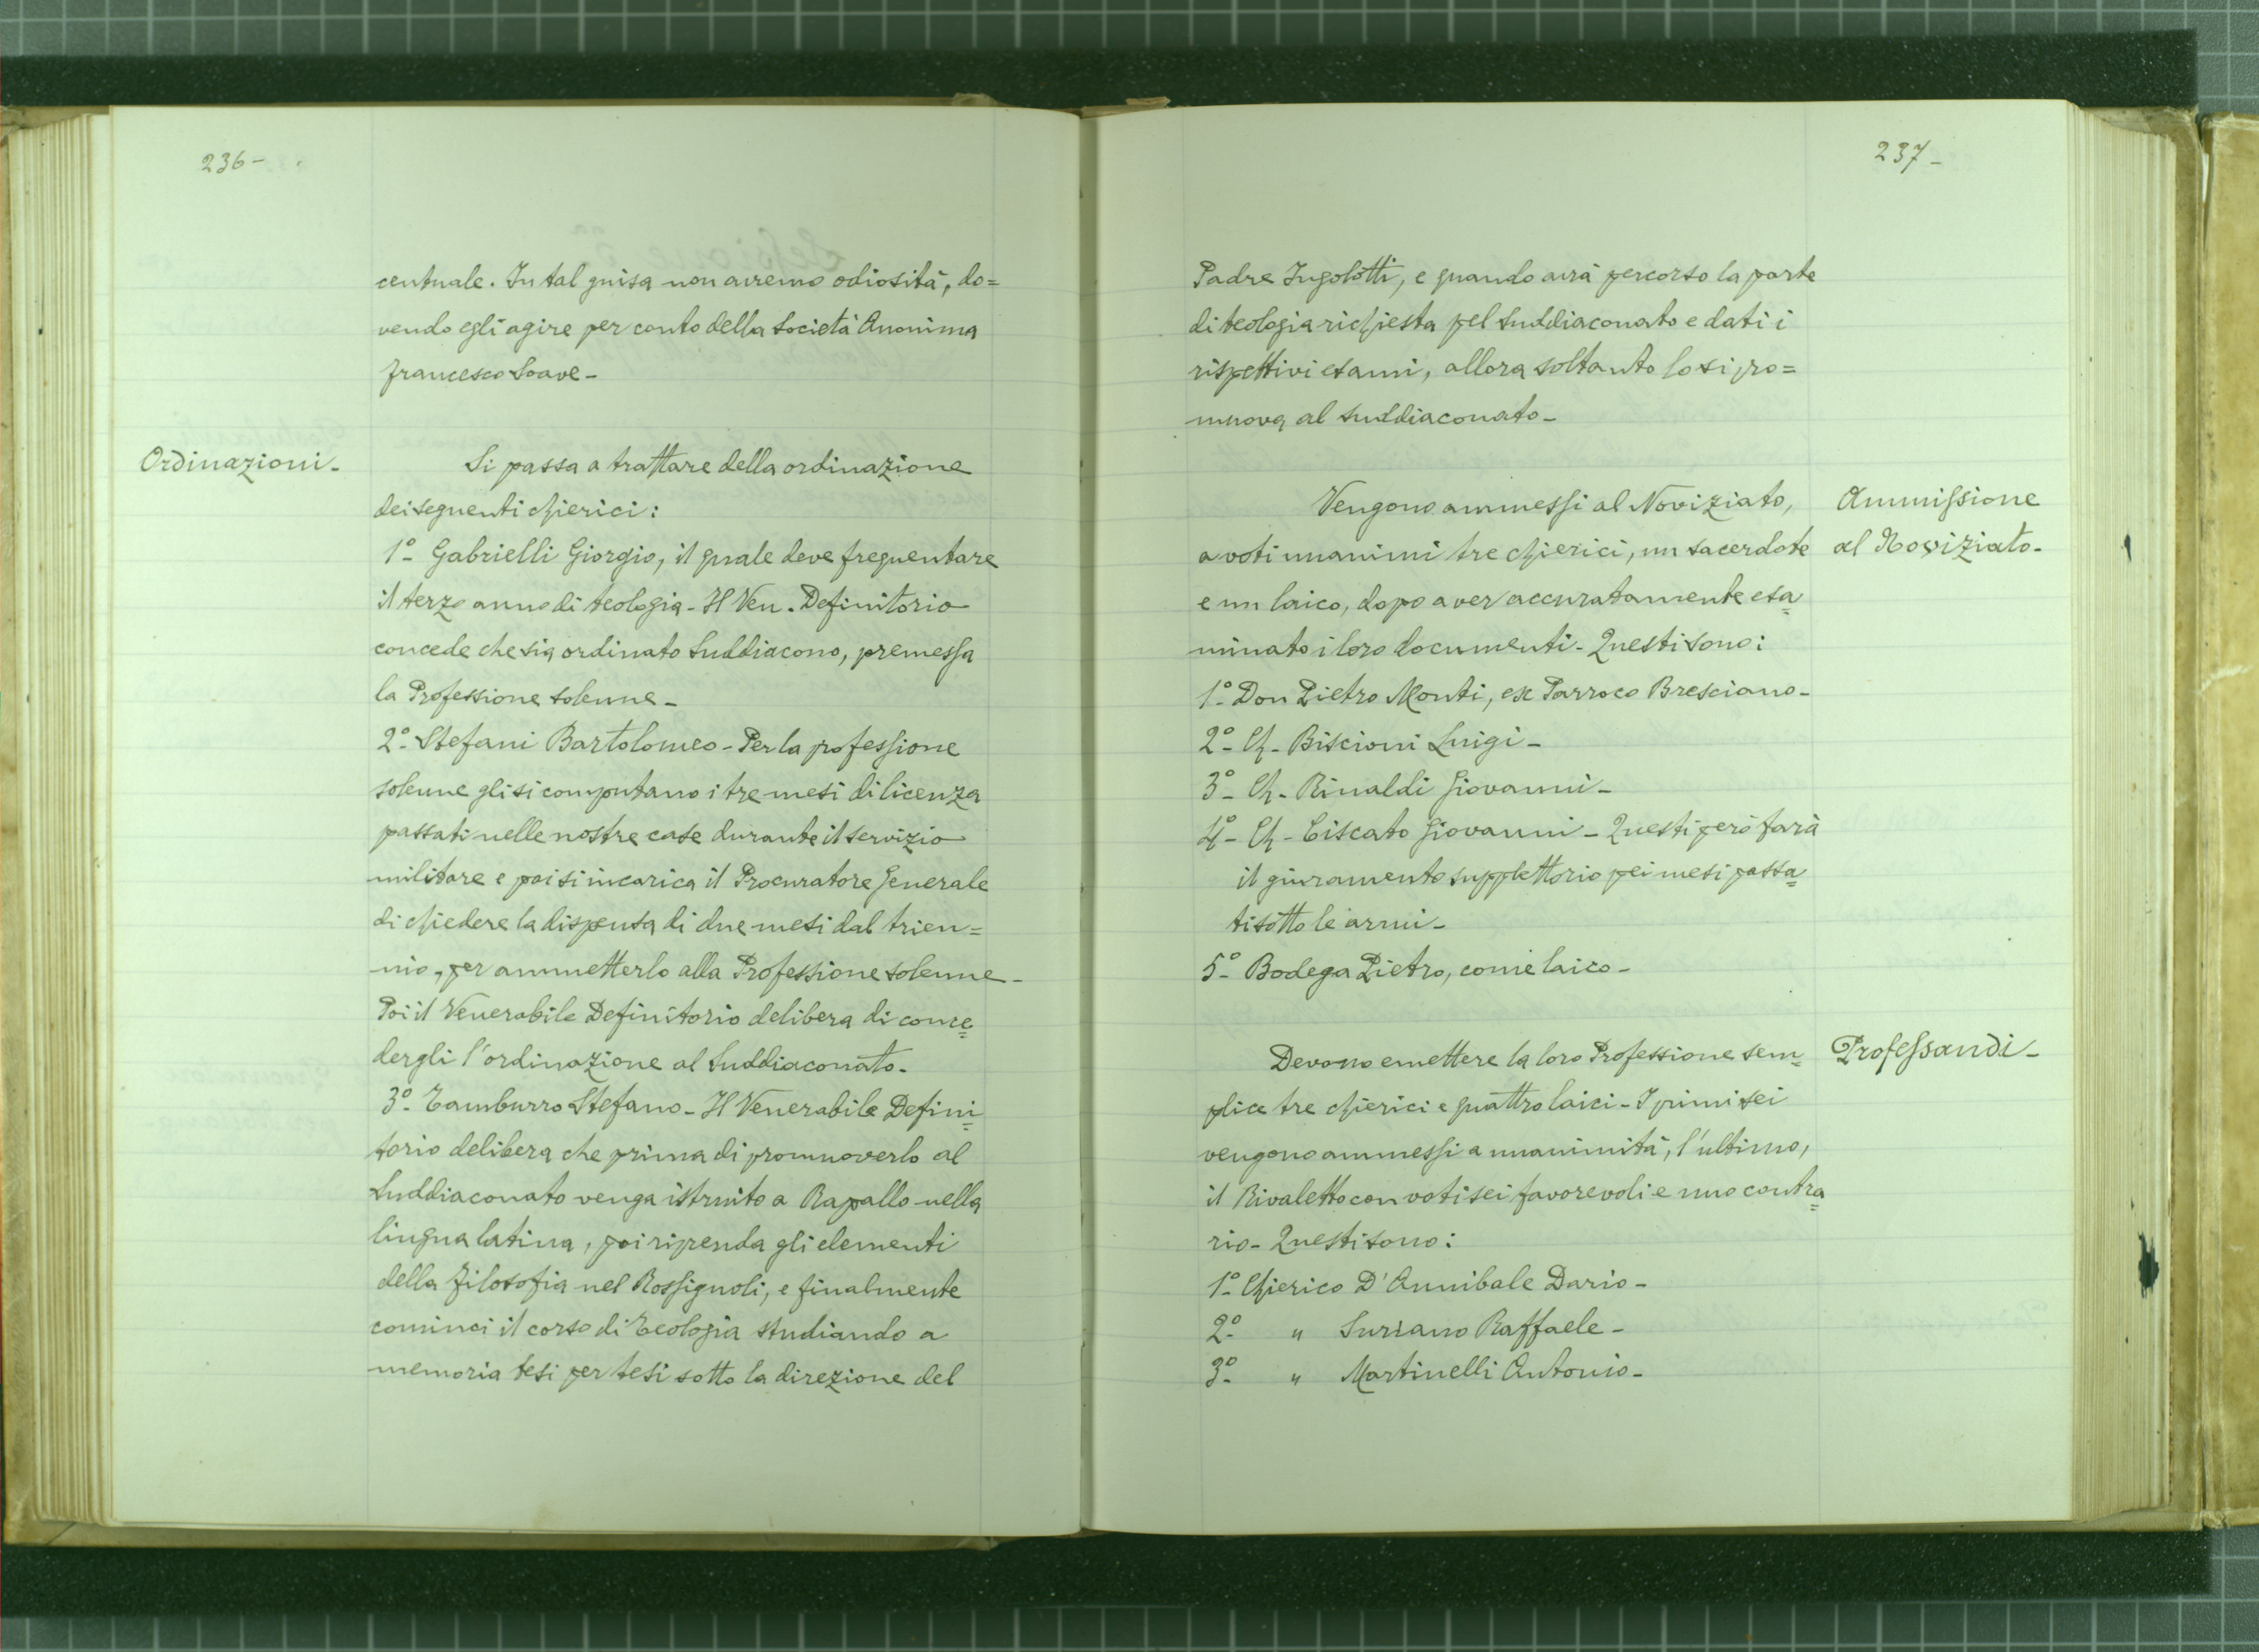 236-
centuale. In tal guisa non avremo odiosità, do=
vendo egli agire per conto della Società Anonima
Francesco Soave-
Ordinazioni-
Si passa a trattare della ordinazione
dei seguenti chierici:
1º- Gabrielli Giorgio, il quale deve frequentare
il terzo anno di teologia- Il Ven. Definitorio
concede che sia ordinato Suddiacono, premessa
la Professione solenne-
2º- Stefani Bartolomeo- Per la professione
solenne gli si computano i tre mesi di licenza
passati nelle nostre case durante il servizio
militare e poi si incarica il Procuratore Generale
di chiedere la dispensa di due mesi dal trien=
nio, per ammetterlo alla Professione solenne-
Poi il Venerabile Definitorio delibera di conce=
dergli l'ordinazione al Suddiaconato.
3º- Tamburro Stefano- Il Venerabile Defini=
torio delibera che prima di promuoverlo al
Suddiaconato venga istruito a Rapallo nella
lingua latina, poi riprenda gli elementi
della Filosofia nel Rossignoli, e finalmente
cominci il corso di Teologia studiando a
memoria tesi per tesi sotto la direzione del
237-
Padre Ingolotti, e quando avrà percorso la parte
di teologia richiesta pel Suddiaconato e dati i
rispettivi esami, allora soltanto lo si pro=
muova al Suddiaconato-
Ammissione
al Noviziato-
Vengono ammessi al Noviziato,
a voti unanimi tre chierici, un sacerdote
e un laico, dopo aver accuratamente esa=
minato i loro documenti- Questi sono:
1º- Don Pietro Monti, ex Parroco Bresciano-
2º- Ch- Biscioni Luigi-
3º- Ch- Rinaldi Giovanni-
4º- Ch- Ciscato Giovanni- Questi però farà
il giuramento supplettorio pei mesi passa=
ti sotto le armi-
5º- Bodega Pietro, come laico-
Professandi-
Devono emettere la loro Professione sem=
plice tre chierici e quattro laici- I primi sei
vengono ammessi a unanimità, l'ultimo,
il Rivaletto con voti sei favorevoli e uno contra=
rio- Questi sono:
1º- Chierico D'Annibale Dario-
2º- " Suriano Raffaele-
3º- " Martinelli Antonio-